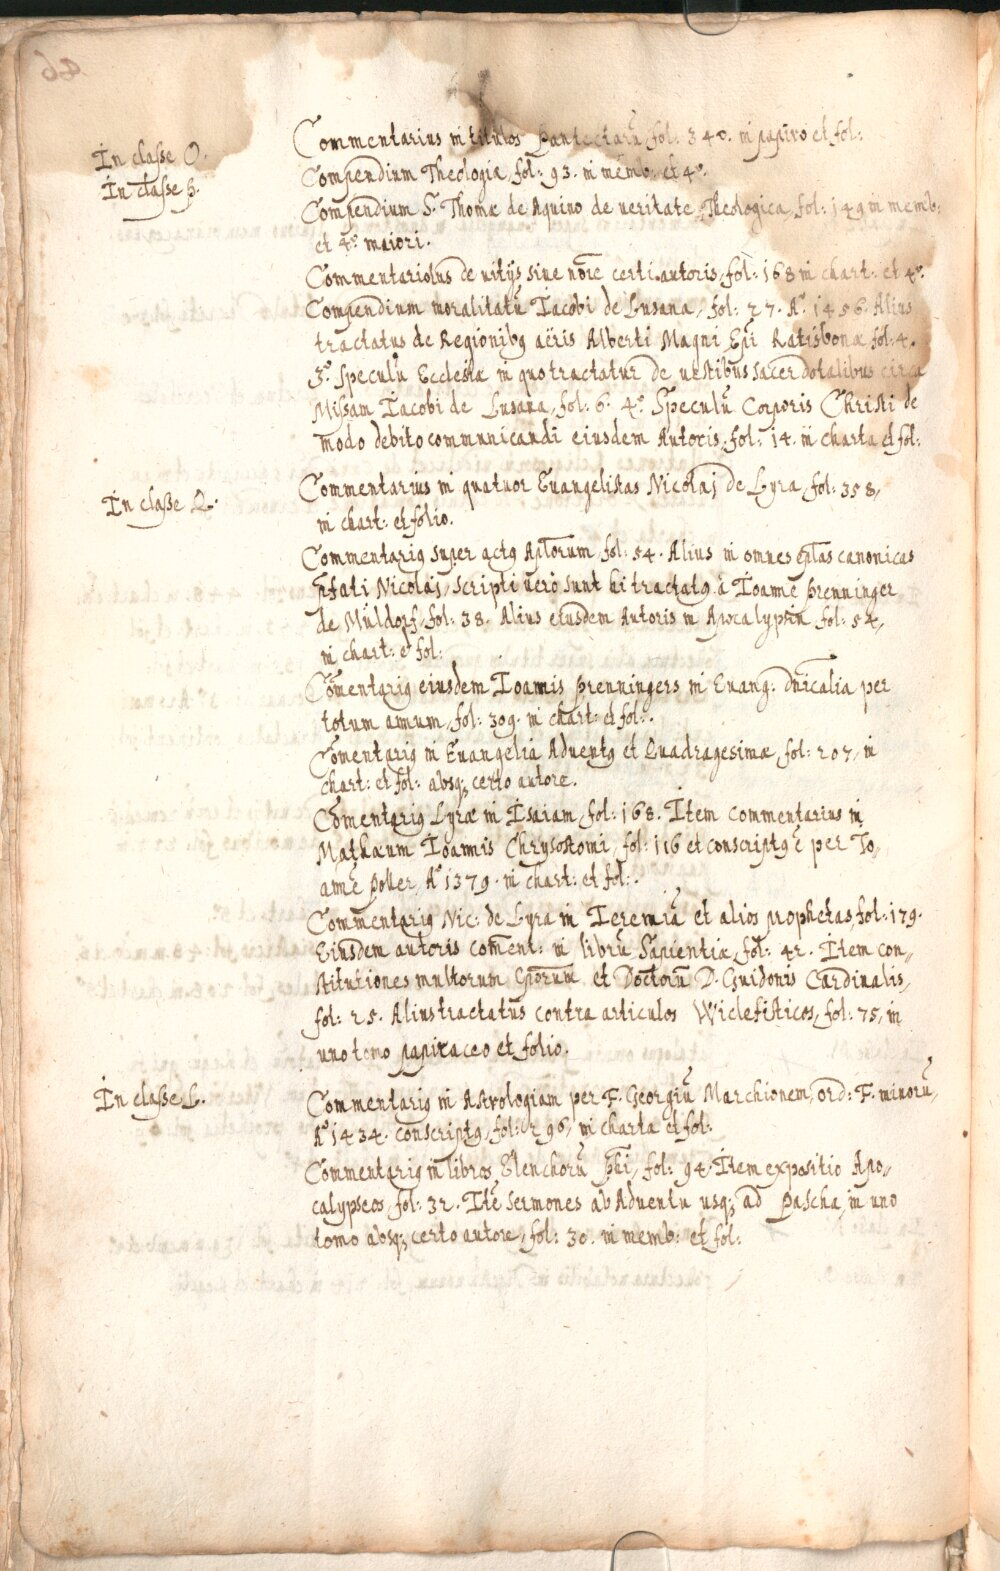 Commentarius in titulos Pantectarū, fol: 340. in papiro et fol:
In classe O.
Compendium Theologiæ, fol: 93. in memb: et 4º.
In classe h.
Compendium S. Thomæ de Aquino de veritate Theologica, fol: 149 in memb:
et 4º maiori.
Commentariolus de vitijs sine nōre certi autoris, fol: 168 in chart: et 4º.
Compendium moralitatū Iacobi de Lusana, fol: 77. Aº. 1456. Alius
tractatus de Regionibꝰ aëris Alberti Magni Epi Ratisbonæ fol: 4.
3º. Speculū Ecclesiæ in quo tractatur de vestibus sacerdotalibus circa
Missam Iacobi de Lusana, fol: 6. 4º. Speculū Corporis Christi de
modo debito communicandi eiusdem Autoris, fol: 14. in charta et fol:
Commentarius in quatuor Euangelistas Nicolaj de Lyra, fol: 358,
In classe Q.
in chart: et folio.
Commentariꝰ super actꝰ Aplorum, fol: 54. Alius in omnes eplas canonicas
pfati Nicolaj, scripti verò sunt hi tractatꝰ à Ioanne prenninger
de Müldorf, fol: 38. Alius eiusdem Autoris in Apocalypsin, fol: 54,
in chart: et fol:
Cōmentariꝰ eiusdem Ioannis prenningers in Euang: dnicalia per
totum annum, fol: 309. in chart: et fol:.
Cōmentariꝰ in Euangelia Aduentꝰ et Quadragesimæ, fol: 207, in
chart: et fol: absqꝫ certo autore.
Cōmentariꝰ Lyræ in Isaiam, fol: 168. Item commentarius in
Mathæum Ioannis Chrysostomi, fol: 116 et conscriptꝰ ē per Io,,
annē Poller, Aº 1379. in chart: et fol:.
Commentariꝰ Nic: de Lyra in Ieremiā et alios prophetas, fol: 179.
Eiusdem autoris coment: in librū Sapientiæ, fol: 42. Item con,,
stitutiones multorum Eporum et Doctorū D. Guidonis Cardinalis,
fol: 25. Alius tractatus contra articulos Wiclefisticos, fol: 75, in
uno tomo papiraceo et folio.
In classe L.
Commentariꝰ in Astrologiam per F. Georgiū Marchionem, ord: F. minorū,
Aº 1434. conscriptꝰ, fol: 296, in charta et fol:
Commentariꝰ in libros Elenchorū phi, fol: 94. Item expositio Apo,,
calypseos, fol: 32. Itē sermones ab Aduentu usqꝫ ad Pascha, in uno
tomo absqꝫ certo autore, fol: 30. in memb: et fol: